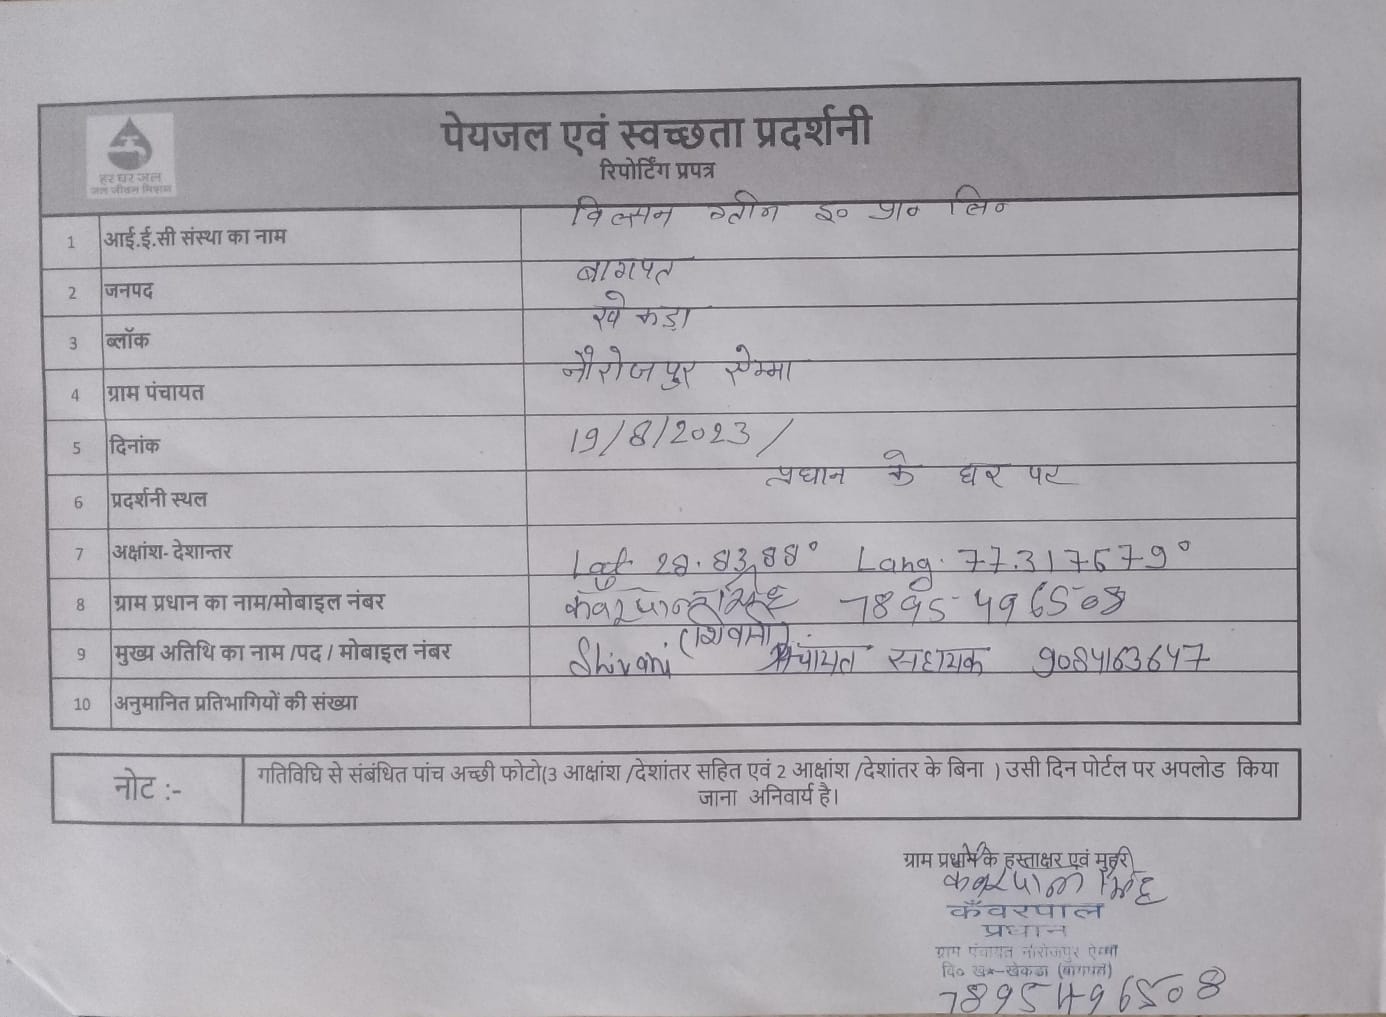 हर घर जल
जल जीवन मिशन
पेयजल एवं स्वच्छता प्रदर्शनी
रिपोर्टिंग प्रपत्र
1 आई.ई.सी संस्था का नाम विल्सन ग्रीन इ० प्रा० लि०
2 जनपद बागपत
3 ब्लॉक खेकड़ा
4 ग्राम पंचायत नौरोजपुर ऐम्मा
5 दिनांक 19/8/2023/
6 प्रदर्शनी स्थल प्रधान के घर पर
7 अक्षांश- देशान्तर Lat 28. Lang. 77.317679°
8 ग्राम प्रधान का नाम/मोबाइल नंबर कंवरपाल सिंह 7895496508
9 मुख्य अतिथि का नाम /पद / मोबाइल नंबर Shivani (शिवानी) पंचायत सहायक 9084163647
10 अनुमानित प्रतिभागियों की संख्या
नोट :- गतिविधि से संबंधित पांच अच्छी फोटो(3 आक्षांश /देशांतर सहित एवं 2 आक्षांश /देशांतर के बिना ) उसी दिन पोर्टल पर अपलोड किया
जाना अनिवार्य है।
ग्राम प्रधान के हस्ताक्षर एवं मुहर
कवरपाल सिंह
कँवरपाल
प्रधान
ग्राम पंचायत नौरोजपुर ऐम्मा
वि० ख०-खेकडा (बागपत)
7895496508